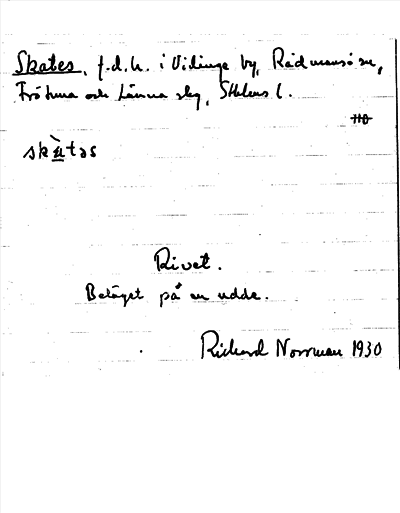 Skates, f.d.h. i Vidinge by, Rådmansö sn,
Frötuna och Länna skg, Sthlms l.
skàtəs
Rivet.
Beläget på en udde.
Richard Norrman 1930